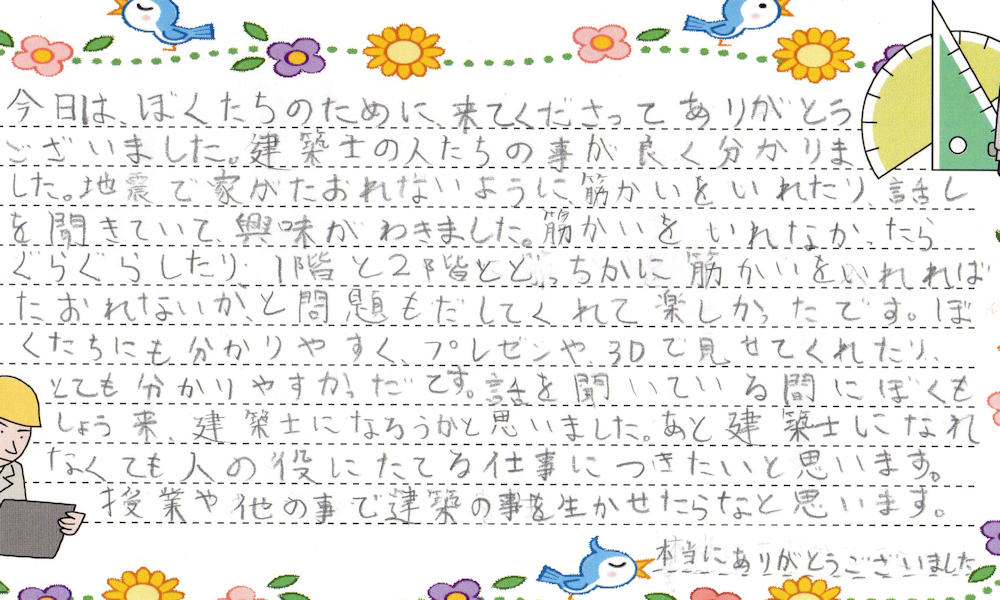 今日は、ぼくたちのために、来てくださってありがとう
ございました。建築士の人たちの事が良く分かりま
した。地震で家がたおれないように、筋かいをいれたり、話し
を聞きていて、興味がわきました。筋かいをいれなかったら
ぐらぐらしたり、1階と2階とどっちかに筋かいをいれれば
たおれないか、と問題もだしてくれて楽しかったです。ぼ
くたちにも分かりやすく、プレゼンや、3Dで見せてくれたり、
とても分かりやすかっだです。話を聞いている間にぼくも
しょう来、建築士になろうかと思いました。あと建築士になれ
なくても人の役にたてる仕事につきたいと思います。
授業や他の事で建築の事を生かせたらなと思います。
本当にありがとうございました